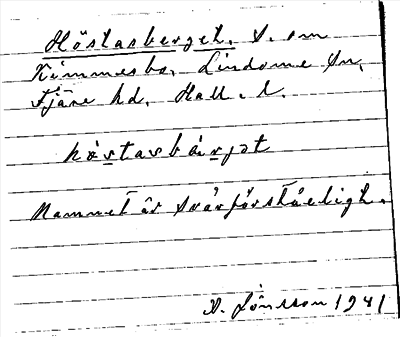 Höstasberget. S. om
Kimmesbo, Lindome sn,
Fjäre hd. Hall. l.
höstasbärjet
Namnet är svårförståeligh.
A. Jönsson 1941